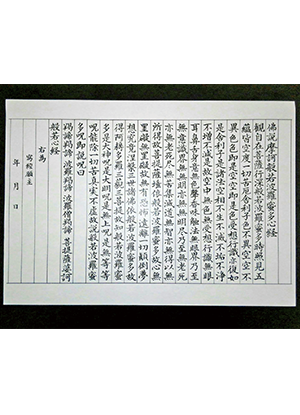 佛説摩訶般若波羅蜜多心経
観自在菩薩行深般若波羅蜜多時照見五
蘊皆空度一切苦厄舎利子色不異空空不
異色色即是空空即是色受想行識亦復如
是舎利子是諸法空相不生不滅不垢不浄
不増不減是故空中無色無受想行識無眼
耳鼻舌身意無色聲香味觸法無眼界乃至
無意識界無無明亦無無明盡乃至無老死
亦無老死盡無苦集滅道無智亦無得以無
所得故菩提薩埵依般若波羅蜜多故心無
罣礙無罣礙故無有恐怖遠離一切顛倒夢
想究竟涅槃三世諸佛依般若波羅蜜多故
得阿耨多羅三藐三菩提故知般若波羅蜜
多是大神呪是大明呪是無上呪是無等等
呪能除一切苦真実不虚故説般若波羅蜜
多呪即説呪曰
羯諦羯諦 波羅羯諦 波羅僧羯諦 菩提薩婆訶
般若心経
右為
寫経願主
年 月 日